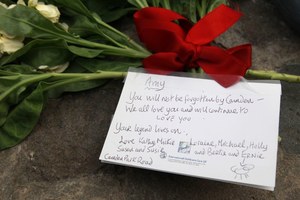 Amy
You will not be forgotten by Camden -
We all love you and will continue to
LOVE you
Your legend lives on,
Love Kathy Mike
Sarah and Susie
Camden Park Road
Loraine, Michael, Holly
and Bertie and Ernie